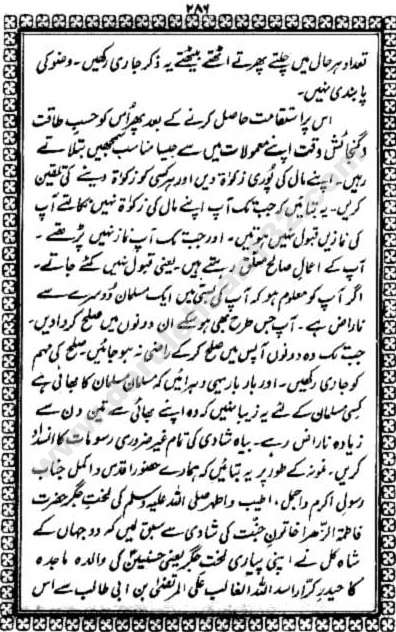 ۲۸۶
تعداد ہر حال میں چلتے پھرتے اٹھتے بیٹھتے یہ ذکر جاری رکھیں۔ وضو کی
پابندی نہیں۔
اس پر استقامت حاصل کرنے کے بعد پھر اُس کو حسبِ طاقت
و گنجائش وقت اپنے معمولات میں سے جیسا مناسب سمجھیں بتلاتے
رہیں۔ اپنے مال کی پوری زکوٰۃ دیں اور ہر کسی کو زکوٰۃ دینے کی تلقین
کریں۔ یہ بتائیں کہ جب تک آپ اپنے مال کی زکوٰۃ نہیں نکالتے آپ
کی نمازیں قبول نہیں ہوتیں۔ اور جب تک آپ نماز نہیں پڑھتے۔
آپ کے اعمالِ صالح معلق رہتے ہیں۔ یعنی قبول نہیں کئے جاتے۔
اگر آپ کو معلوم ہو کہ آپ کی بستی میں ایک مسلمان دُوسرے سے
ناراض ہے۔ آپ جس طرح بھی ہو سکے ان دونوں میں صلح کروا دیں۔
جب تک وہ دونوں آپس میں صلح کر کے راضی نہ ہو جائیں۔ صلح کی مہم
کو جاری رکھیں۔ اور بار بار یہی دہرائیں کہ مسلمان مسلمان کا بھائی ہے
کسی مسلمان کے لئے یہ زیبا نہیں کہ وہ اپنے بھائی سے تین دن سے
زیادہ ناراض رہے۔ بیاہ شادی کی تمام غیر ضروری رسومات کا انسداد
کریں۔ نمونہ کے طور پر یہ بتائیں کہ ہمارے حضور اقدس و اکمل جناب
رسولِ اکرم و اجمل، اطیب و اطہر صلی اللہ علیہ وسلم کی لختِ جگر حضرت
فاطمۃ الزہرا خاتونِ جنّت کی شادی سے سبق لیں کہ دو جہاں کے
شاہِ کل نے اپنی پیاری لختِ جگر یعنی حسنینؓ کی والدہ ماجدہ
کا حیدرِ کرار اسد اللہ الغالب علی المرتضیٰ بن ابی طالب سے اس
www.